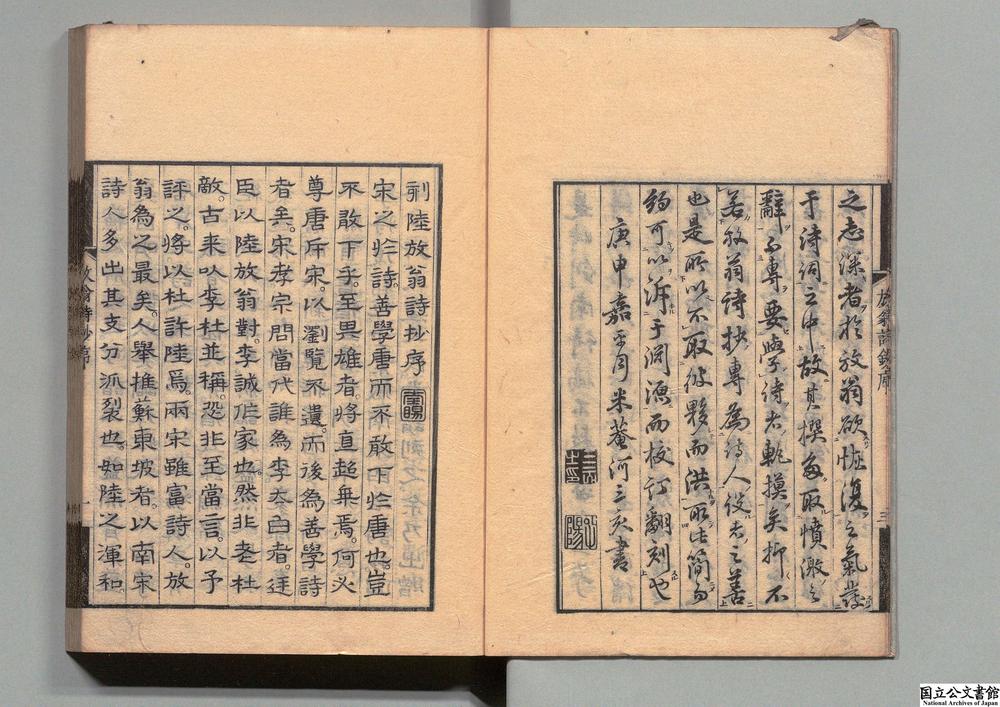 之志深者於放翁欲恢復之氣發
于詩詞之中故其撰多取憤激之
辭而專要學詩者軌摸矣抑不
若放翁詩抄專為詩人役者之善
也是所以不取彼夥而洪取此簡而
約可以泝于澗源而校訂翻刻也
庚申嘉平月米菴河三亥書
放翁詩鈔序
三
刻陸放翁詩抄序
宋之於詩善學唐而不敢下於唐也豈
不敢下乎至畀雄者將直超乗焉何必
尊唐斥宋以瀏覽不遺而後為善學詩
者矣宋孝宗問當代誰為李太白者廷
臣以陸放翁對李誠作家也然非老杜
敵古来以李杜並稱恐非至當言以予
評之將以杜許陸焉兩宋雖富詩人放
翁為之最矣人舉推蘇東坡者以南宋
詩人多出其支分派裂也如陸之渾和
放翁詩抄序
一
国立公文書館
National Archives of Japan